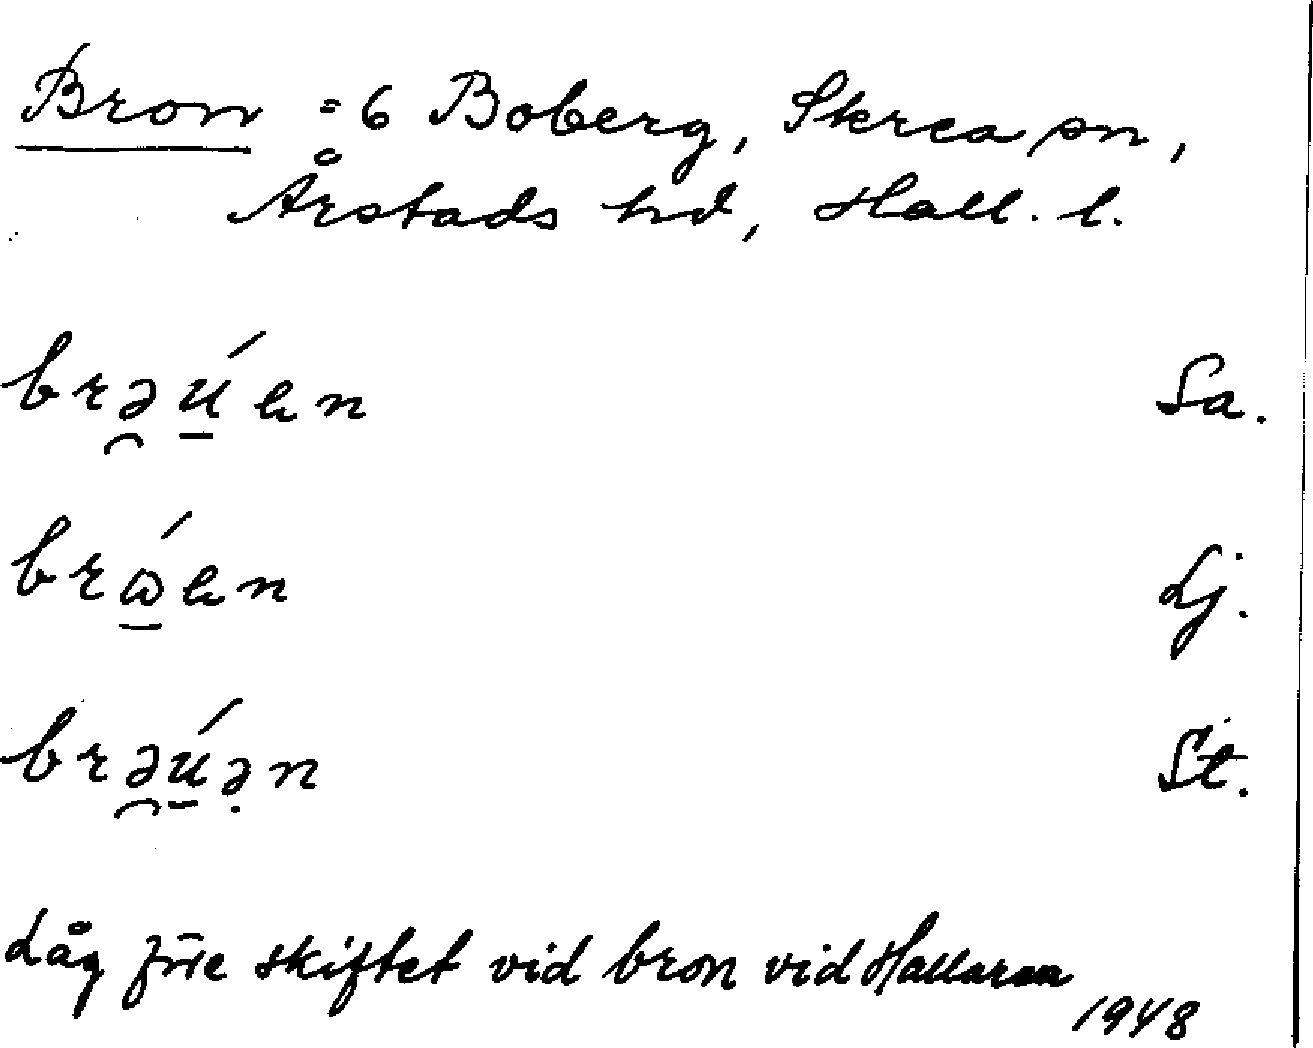 Bron = 6 Boberg, Skrea sn,
Årstads hd, Hall. l.
brəú̱en Sa.
brώ̱en Lj.
brəú̱ə̣n St.
Låg före skiftet vid bron vid Hallaran
1948